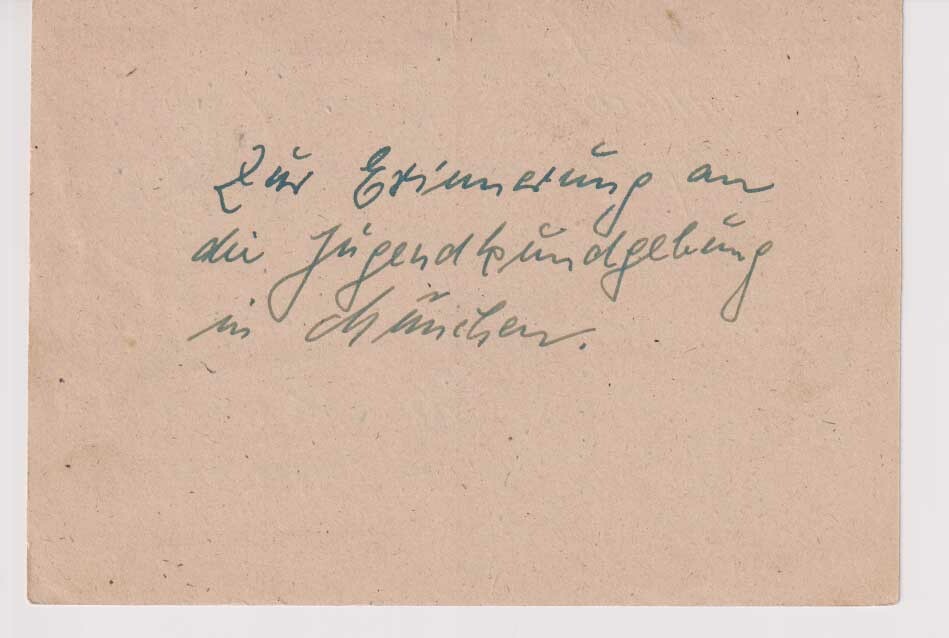 Zur Erinnerung an
die Jugendkundgebung
in München.